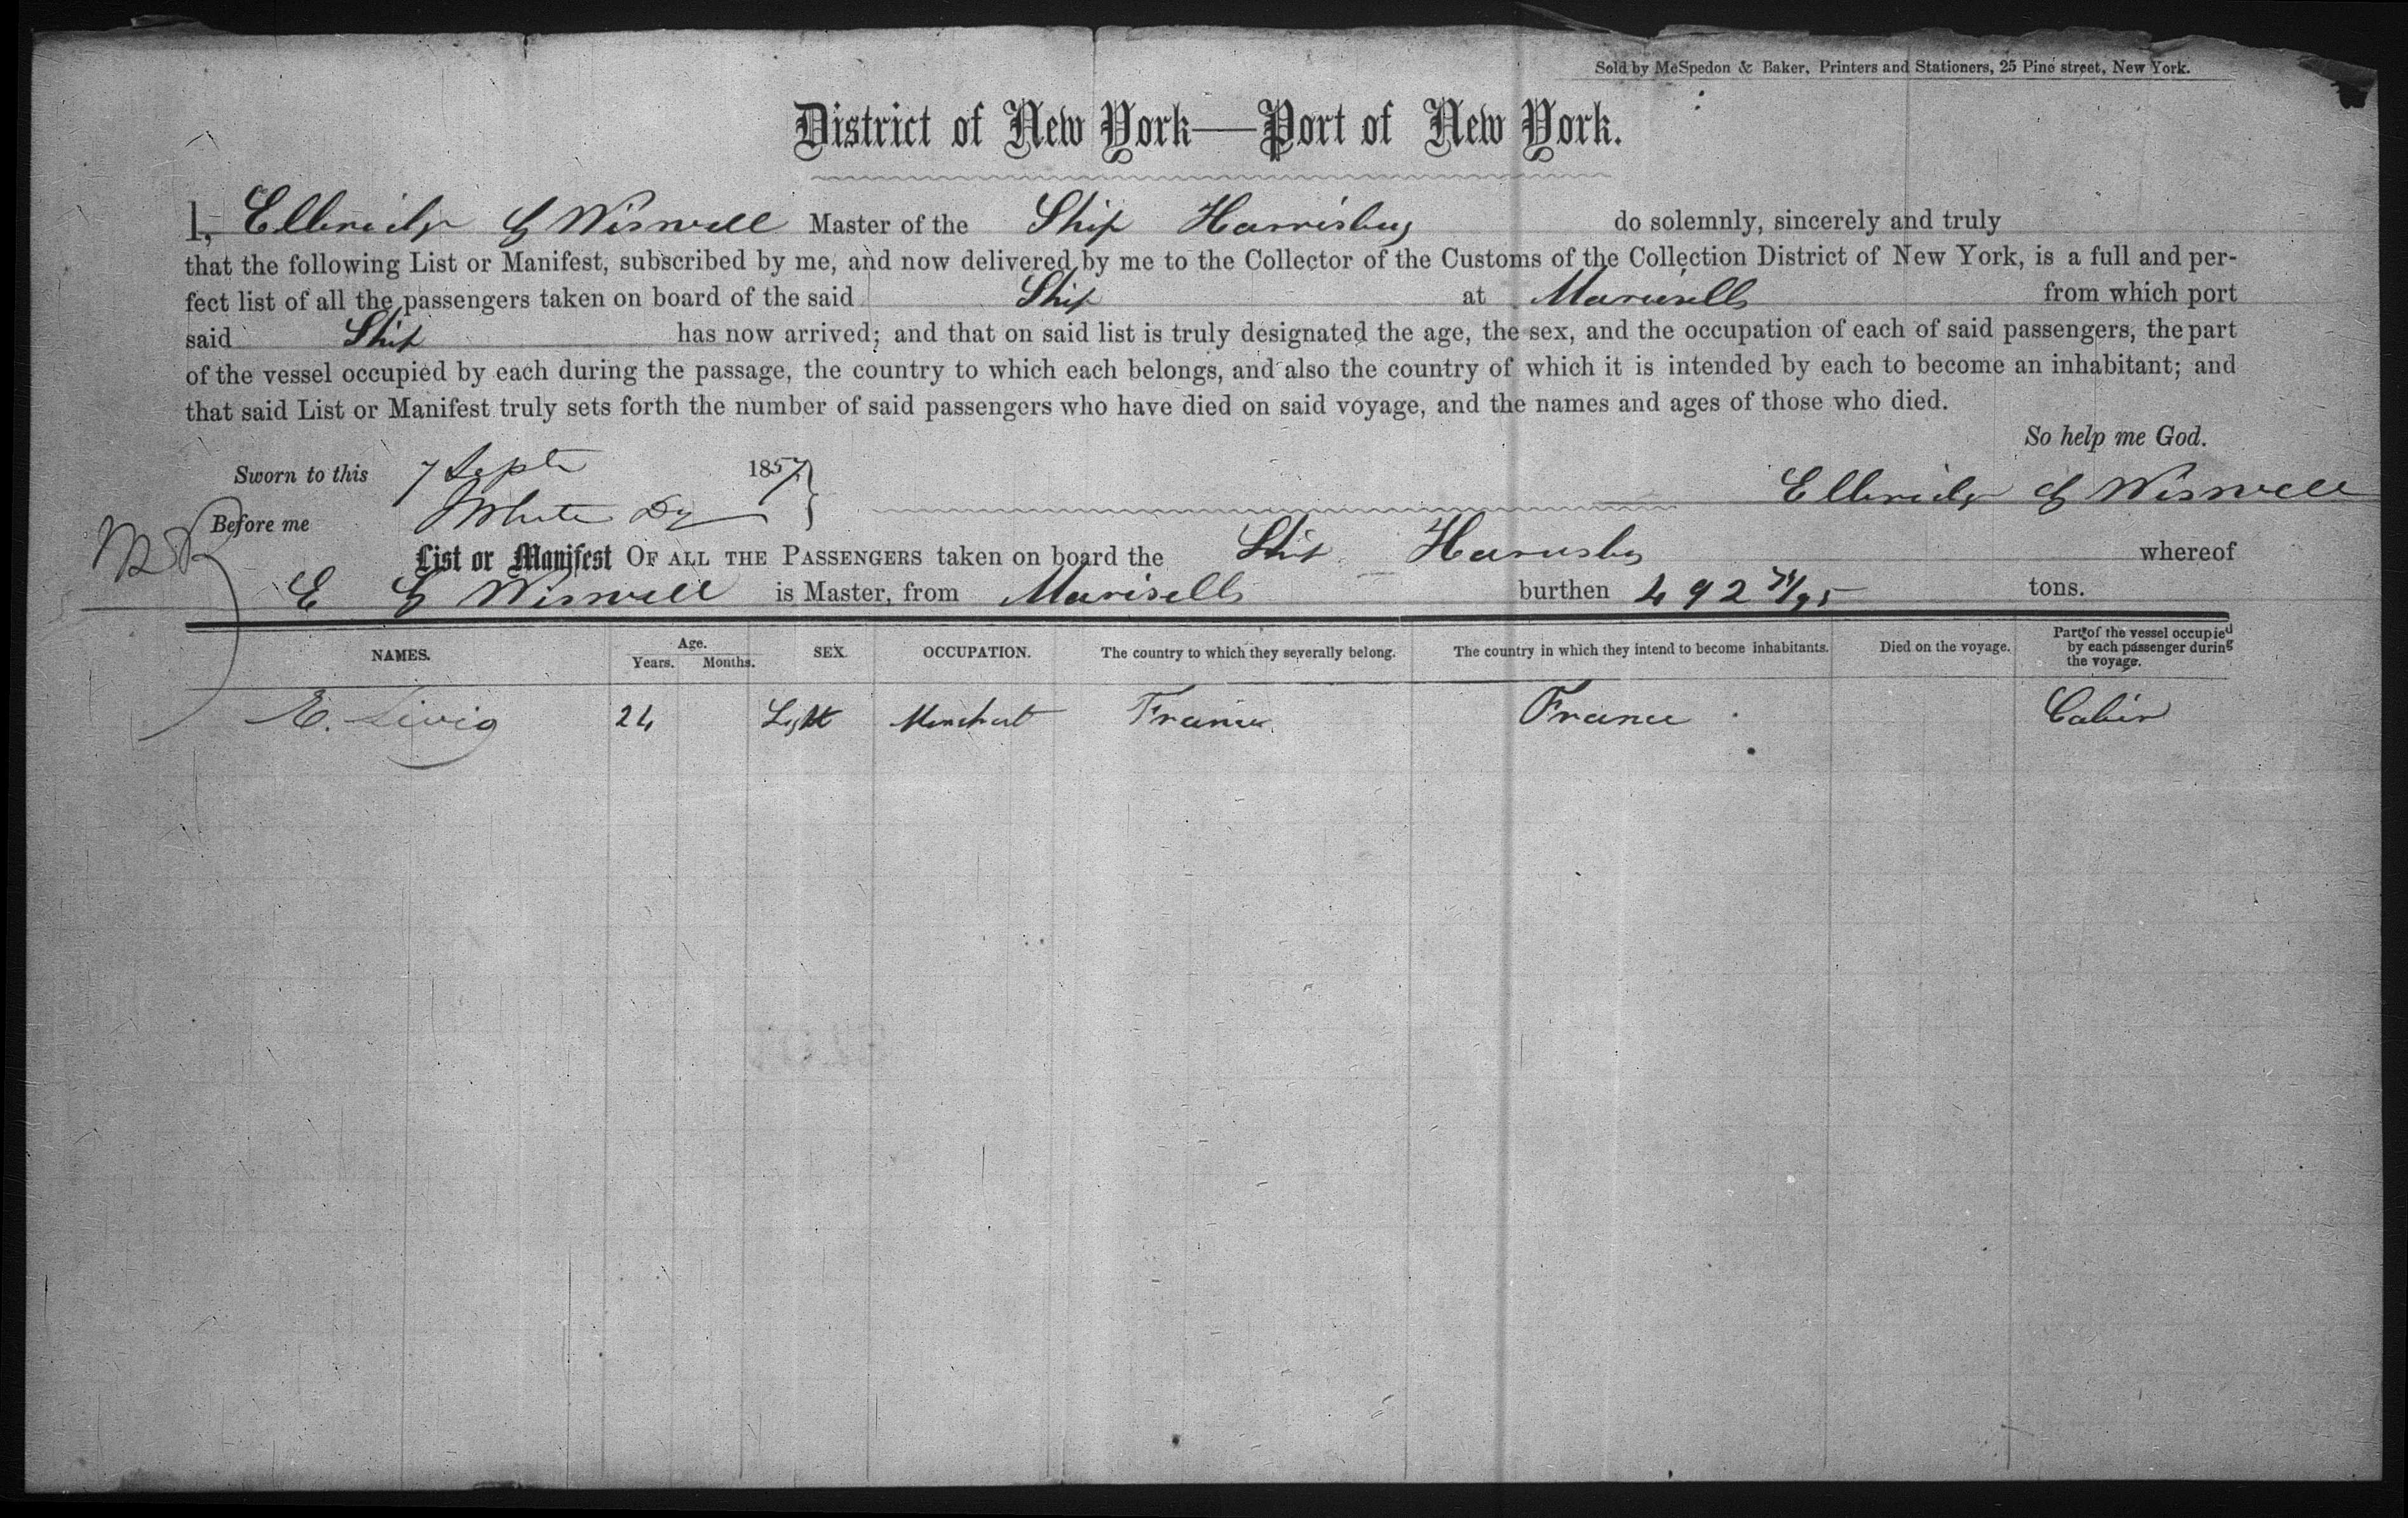 Sold by McSpedon & Baker, Printers and Stationers, 25 Pine street, New York.
District of New York—Port of New York.
I, Elbridge G Wiswell Master of the Ship Harrisburg do solemnly, sincerely and truly
that the following List or Manifest, subscribed by me, and now delivered by me to the Collector of the Customs of the Collection District of New York, is a full and per-
fect list of all the passengers taken on board of the said Ship at Marseills from which port
said Ship has now arrived; and that on said list is truly designated the age, the sex, and the occupation of each of said passengers, the part
of the vessel occupied by each during the passage, the country to which each belongs, and also the country of which it is intended by each to become an inhabitant; and
that said List or Manifest truly sets forth the number of said passengers who have died on said voyage, and the names and ages of those who died.
So help me God.
Sworn to this 7 Septr 1857
Elbridge G Wiswell
Before me White Dy
List or Manifest OF ALL THE PASSENGERS taken on board the Ship Harrisburg whereof
E G Wiswell is Master, from Marseills burthen 492 71/95 tons.
NAMES. Age. Years. Months. SEX. OCCUPATION. The country to which they severally belong. The country in which they intend to become inhabitants. Died on the voyage. Part of the vessel occupied by each passenger during the voyage.
E. Livig 24 Merchant France France Cabin